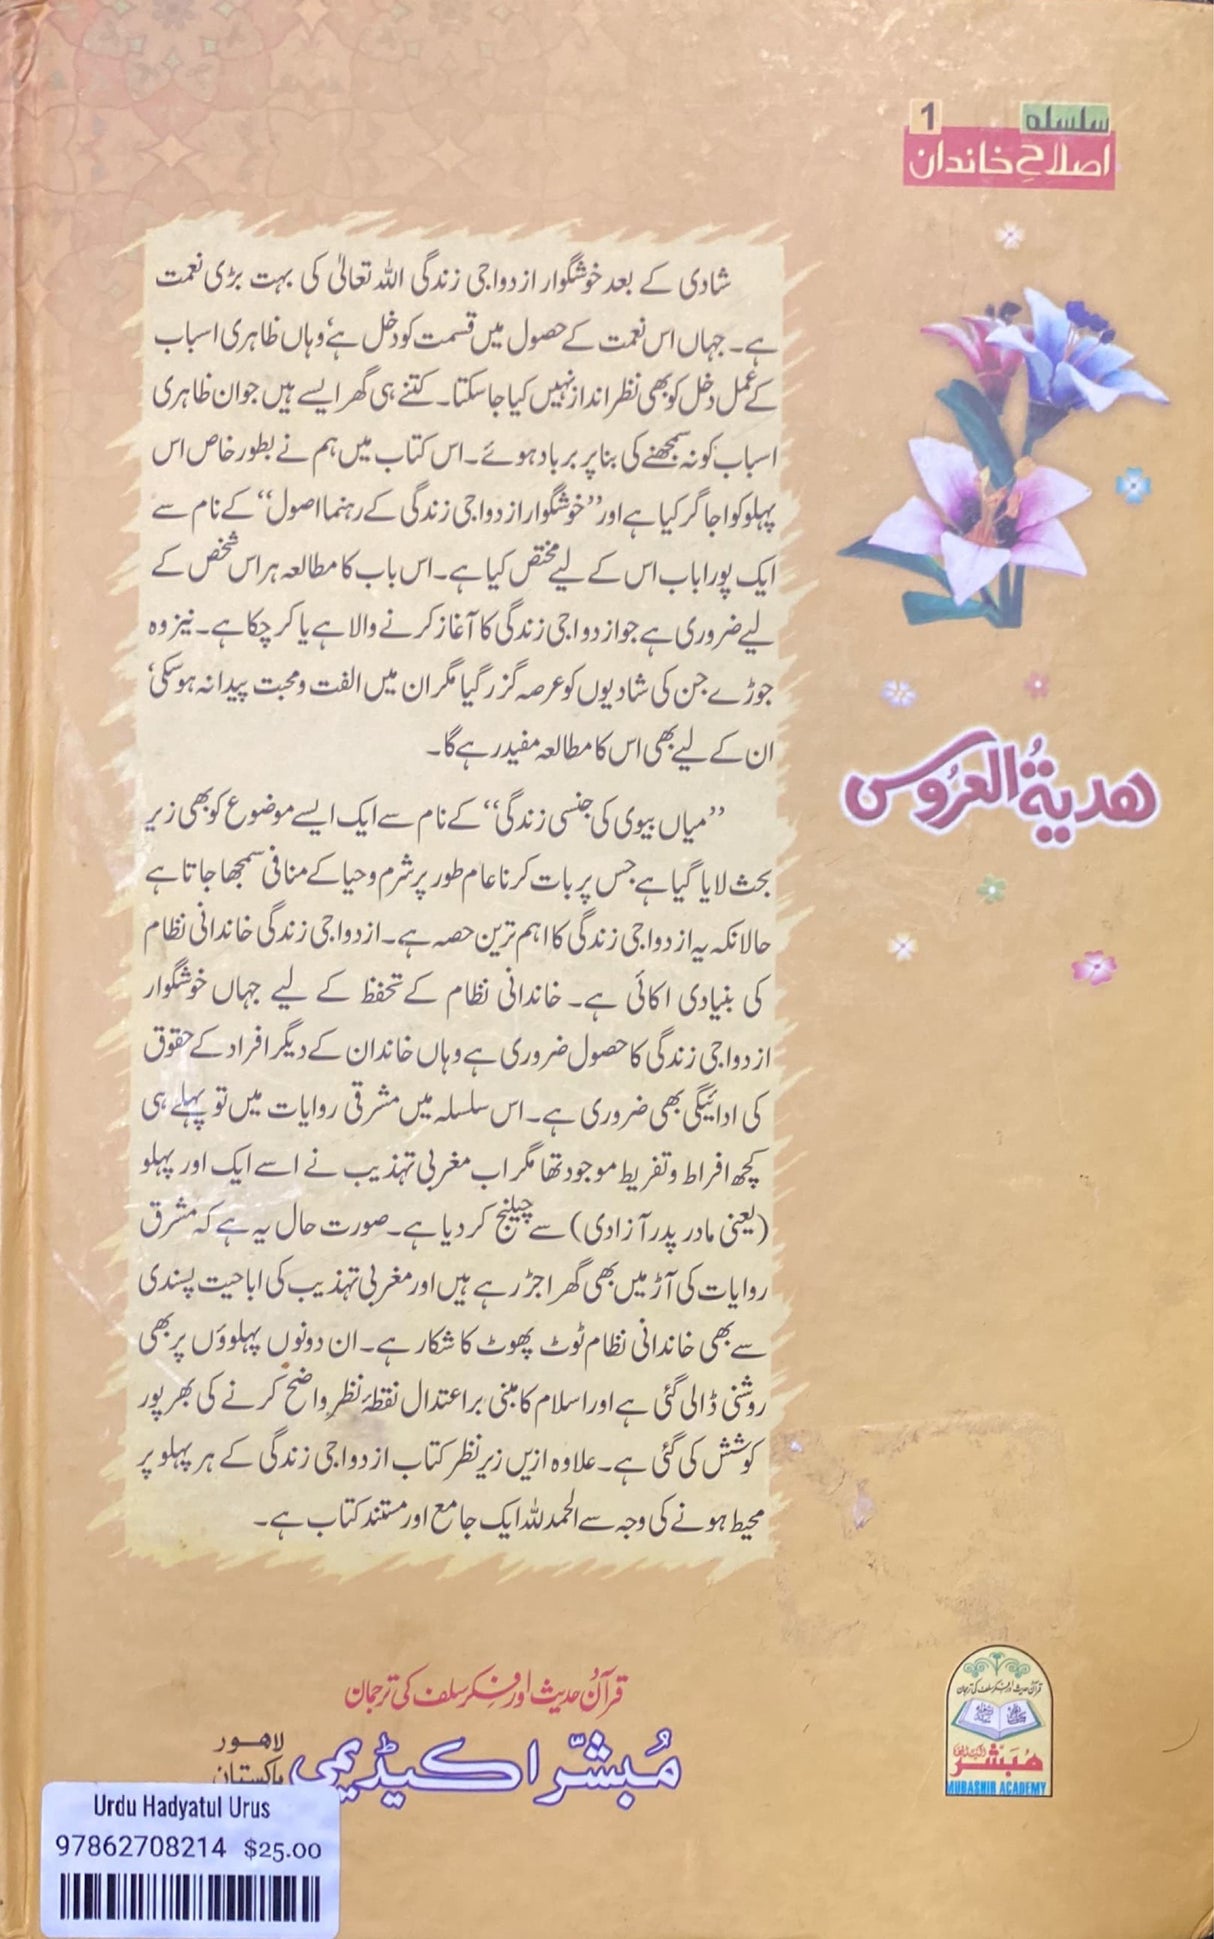 سلسلہ 1
اصلاحِ خاندان
شادی کے بعد خوشگوار ازدواجی زندگی اللہ تعالیٰ کی بہت بڑی نعمت
ہے۔ جہاں اس نعمت کے حصول میں قسمت کو دخل ہے، وہاں ظاہری اسباب
کے عمل دخل کو بھی نظر انداز نہیں کیا جا سکتا۔ کتنے ہی گھر ایسے ہیں جو ان ظاہری
اسباب کو نہ سمجھنے کی بنا پر برباد ہوئے۔ اس کتاب میں ہم نے بطور خاص اس
پہلو کو اجاگر کیا ہے اور ”خوشگوار ازدواجی زندگی کے رہنما اصول“ کے نام سے
ایک پورا باب اس کے لیے مختص کیا ہے۔ اس باب کا مطالعہ ہر اس شخص کے
لیے ضروری ہے جو ازدواجی زندگی کا آغاز کرنے والا ہے یا کر چکا ہے۔ نیز وہ
جوڑے جن کی شادیوں کو عرصہ گزر گیا مگر ان میں الفت و محبت پیدا نہ ہو سکی،
ان کے لیے بھی اس کا مطالعہ مفید رہے گا۔
”میاں بیوی کی جنسی زندگی“ کے نام سے ایک ایسے موضوع کو بھی زیر
بحث لایا گیا ہے جس پر بات کرنا عام طور پر شرم و حیا کے منافی سمجھا جاتا ہے
حالانکہ یہ ازدواجی زندگی کا اہم ترین حصہ ہے۔ ازدواجی زندگی خاندانی نظام
کی بنیادی اکائی ہے۔ خاندانی نظام کے تحفظ کے لیے جہاں خوشگوار
ازدواجی زندگی کا حصول ضروری ہے وہاں خاندان کے دیگر افراد کے حقوق
کی ادائیگی بھی ضروری ہے۔ اس سلسلہ میں مشرقی روایات میں تو پہلے ہی
کچھ افراط و تفریط موجود تھا مگر اب مغربی تہذیب نے اسے ایک اور پہلو
(یعنی مادر پدر آزادی) سے چیلنج کر دیا ہے۔ صورت حال یہ ہے کہ مشرقی
روایات کی آڑ میں بھی گھر اجڑ رہے ہیں اور مغربی تہذیب کی اباحیت پسندی
سے بھی خاندانی نظام ٹوٹ پھوٹ کا شکار ہے۔ ان دونوں پہلوؤں پر بھی
روشنی ڈالی گئی ہے اور اسلام کا مبنی بر اعتدال نقطۂ نظر واضح کرنے کی بھرپور
کوشش کی گئی ہے۔ علاوہ ازیں زیر نظر کتاب ازدواجی زندگی کے ہر پہلو پر
محیط ہونے کی وجہ سے الحمد للہ ایک جامع اور مستند کتاب ہے۔
هدیۃُ العَرُوس
قرآن حدیث اور فکرِ سلف کی ترجمان
مُبشّر اکیڈیمی لاہور
پاکستان
قرآن حدیث اور فکر سلف کی ترجمان
مُبَشّر اکیڈیمی
MUBASHIR ACADEMY
Urdu Hadyatul Urus
97862708214 $25.00